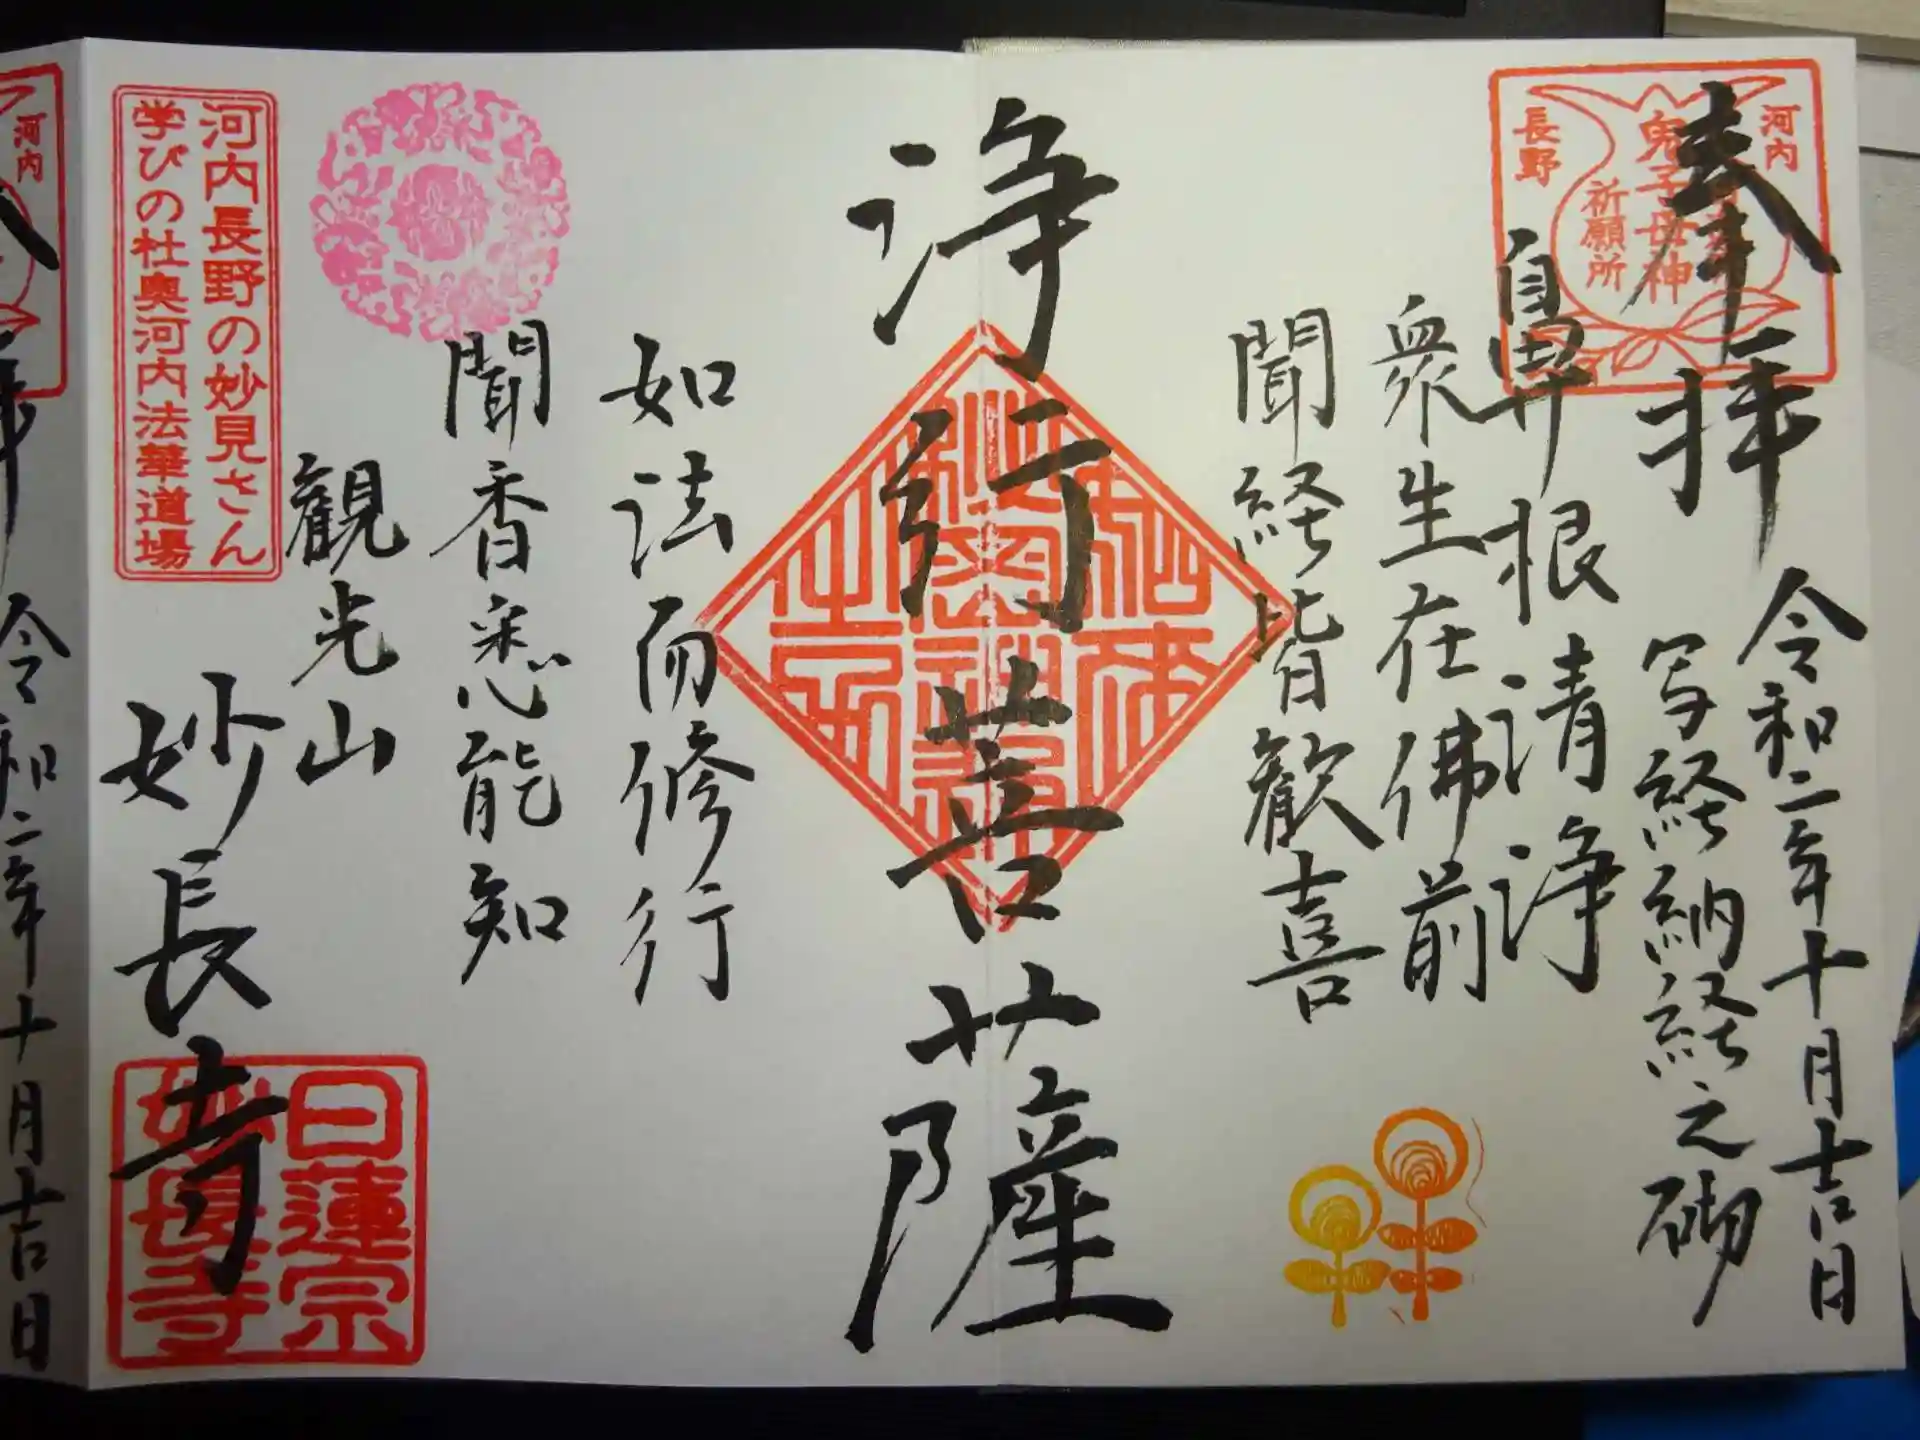 奉拝
令和二年十月吉日
写経納経之砌
河内
鬼子母神
祈願所
長野
鼻根清浄
衆生在佛前
聞経皆歓喜
浄行菩薩
如法而修行
聞香悉能知
観光山
妙長寺
河内長野の妙見さん
学びの杜奥河内法華道場
日蓮宗
妙長寺
河内
令和二年十月吉日